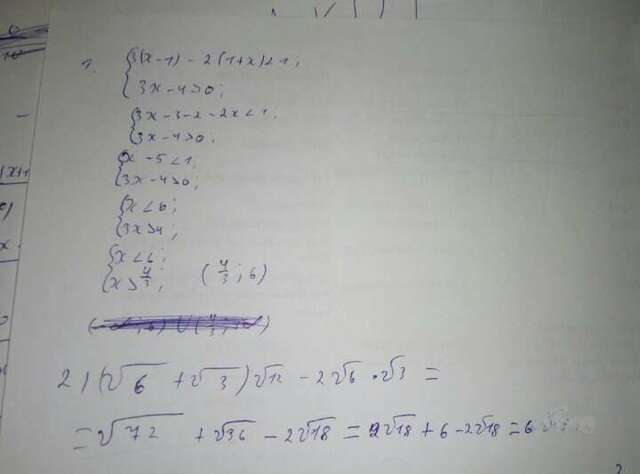 1. {3(x-1)-2(1+x)<1;
{3x-4>0;
{3x-3-2-2x<1;
{3x-4>0;
{x-5<1;
{3x-4>0;
{x<6;
{3x>4;
{x<6;
{x>4/3; (4/3; 6)
2) (√6 + √3)√12 - 2√6 · √3 =
= √72 + √36 - 2√18 = 2√18 + 6 - 2√18 = 6